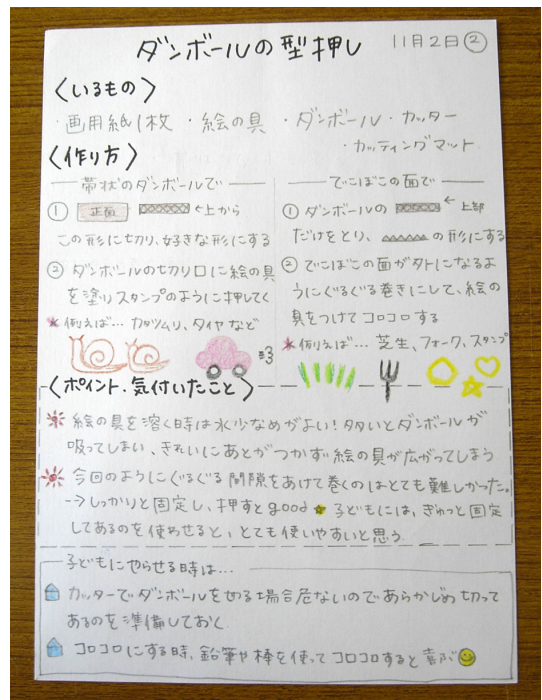 ダンボールの型押し 11月2日②
〈いるもの〉
・画用紙1枚 ・絵の具 ・ダンボール ・カッター
・カッティングマット
〈作り方〉
帯状のダンボールで
① 正面 ←上から
この形に切り、好きな形にする
② ダンボールの切り口に絵の具
を塗りスタンプのように押してく
*例えば… カタツムリ、タイヤなど
でこぼこの面で
① ダンボールの ←上部
だけをとり、 の形にする
② でこぼこの面が外になるよ
うにぐるぐる巻きにして、絵の
具をつけてコロコロする
*例えば… 芝生、フォーク、スタンプ
〈ポイント・気付いたこと〉
絵の具を溶く時は水少なめがよい!多いとダンボールが
吸ってしまい、きれいにあとがつかず絵の具が広がってしまう
今回のようにぐるぐる間隙をあけて巻くのはとても難しかった。
→しっかりと固定し、押すとgood★子どもには、ぎゅっと固定
してあるのを使わせると、とても使いやすいと思う
子どもにやらせる時は…
カッターでダンボールを切る場合危ないのであらかじめ切って
あるのを準備しておく
コロコロにする時、鉛筆や棒を使ってコロコロすると喜ぶ